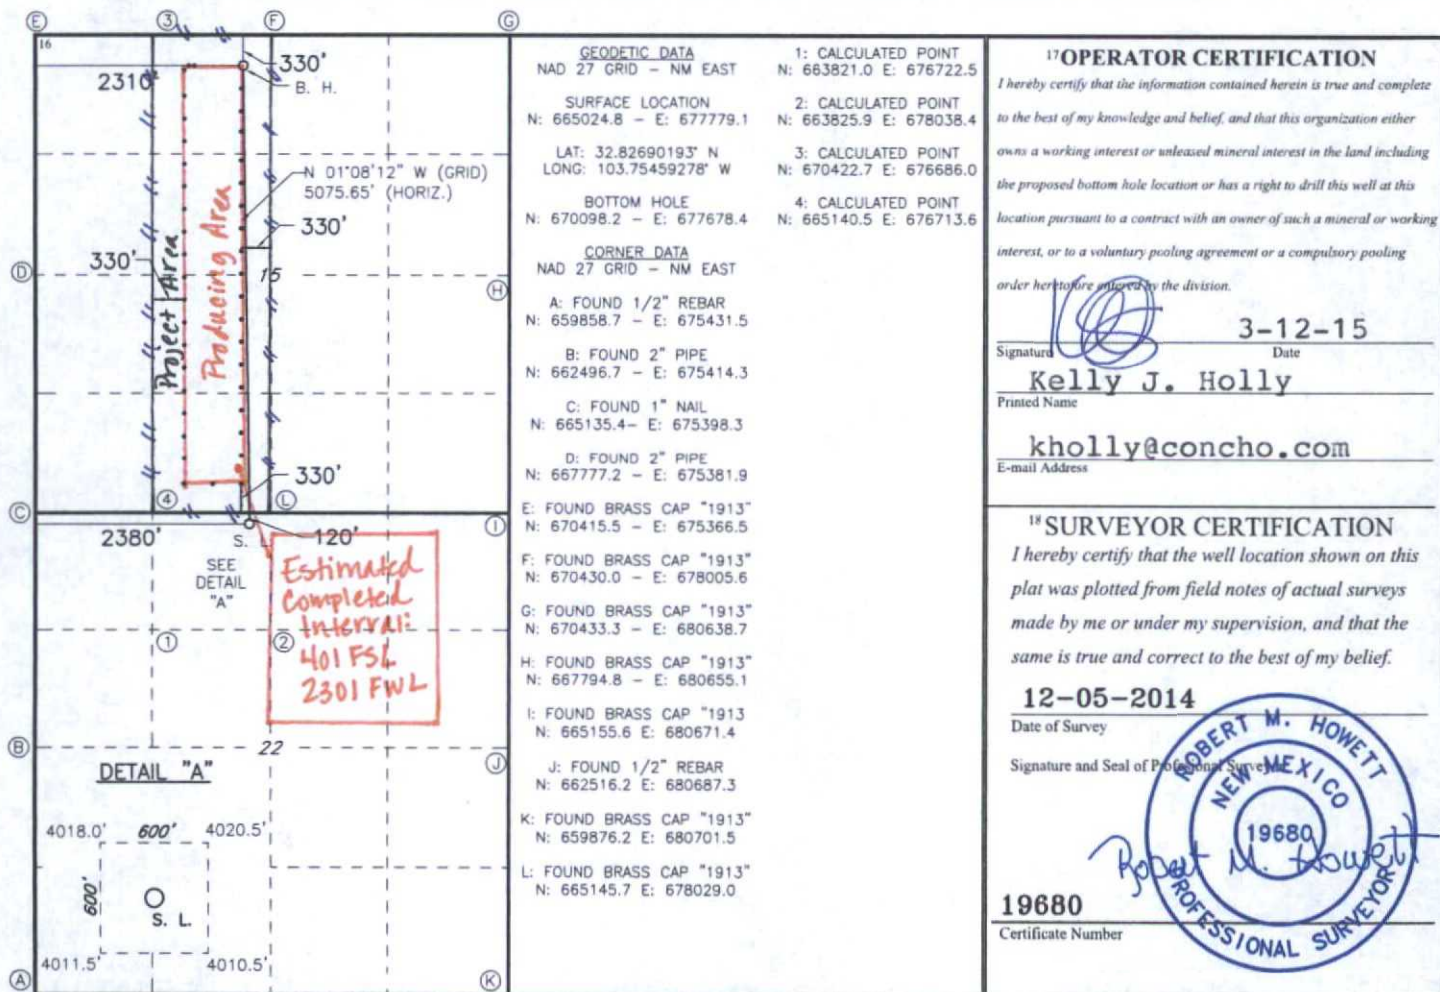 E
3
F
G
16
330'
2310'
B. H.
N 01°08'12" W (GRID)
5075.65' (HORIZ.)
330'
330'
Project Area
Producing Area
D
15
H
330'
4
L
C
I
2380'
S. L.
120'
SEE
DETAIL
"A"
Estimated
Completed
Interval:
401 FSL
2301 FWL
1
2
B
22
J
DETAIL "A"
4018.0'
600'
4020.5'
600'
S. L.
4011.5'
4010.5'
A
K
GEODETIC DATA
NAD 27 GRID - NM EAST
SURFACE LOCATION
N: 665024.8 - E: 677779.1
LAT: 32.82690193° N
LONG: 103.75459278° W
BOTTOM HOLE
N: 670098.2 - E: 677678.4
CORNER DATA
NAD 27 GRID - NM EAST
A: FOUND 1/2" REBAR
N: 659858.7 - E: 675431.5
B: FOUND 2" PIPE
N: 662496.7 - E: 675414.3
C: FOUND 1" NAIL
N: 665135.4- E: 675398.3
D: FOUND 2" PIPE
N: 667777.2 - E: 675381.9
E: FOUND BRASS CAP "1913"
N: 670415.5 - E: 675366.5
F: FOUND BRASS CAP "1913"
N: 670430.0 - E: 678005.6
G: FOUND BRASS CAP "1913"
N: 670433.3 - E: 680638.7
H: FOUND BRASS CAP "1913"
N: 667794.8 - E: 680655.1
I: FOUND BRASS CAP "1913
N: 665155.6 E: 680671.4
J: FOUND 1/2" REBAR
N: 662516.2 E: 680687.3
K: FOUND BRASS CAP "1913"
N: 659876.2 E: 680701.5
L: FOUND BRASS CAP "1913"
N: 665145.7 E: 678029.0
1: CALCULATED POINT
N: 663821.0 E: 676722.5
2: CALCULATED POINT
N: 663825.9 E: 678038.4
3: CALCULATED POINT
N: 670422.7 E: 676686.0
4: CALCULATED POINT
N: 665140.5 E: 676713.6
17 OPERATOR CERTIFICATION
I hereby certify that the information contained herein is true and complete
to the best of my knowledge and belief, and that this organization either
owns a working interest or unleased mineral interest in the land including
the proposed bottom hole location or has a right to drill this well at this
location pursuant to a contract with an owner of such a mineral or working
interest, or to a voluntary pooling agreement or a compulsory pooling
order heretofore entered by the division.
3-12-15
Signature Date
Kelly J. Holly
Printed Name
kholly@concho.com
E-mail Address
18 SURVEYOR CERTIFICATION
I hereby certify that the well location shown on this
plat was plotted from field notes of actual surveys
made by me or under my supervision, and that the
same is true and correct to the best of my belief.
12-05-2014
Date of Survey
Signature and Seal of Professional Surveyor
ROBERT M. HOWETT
NEW MEXICO
19680
Robert M. Howett
PROFESSIONAL SURVEYOR
19680
Certificate Number